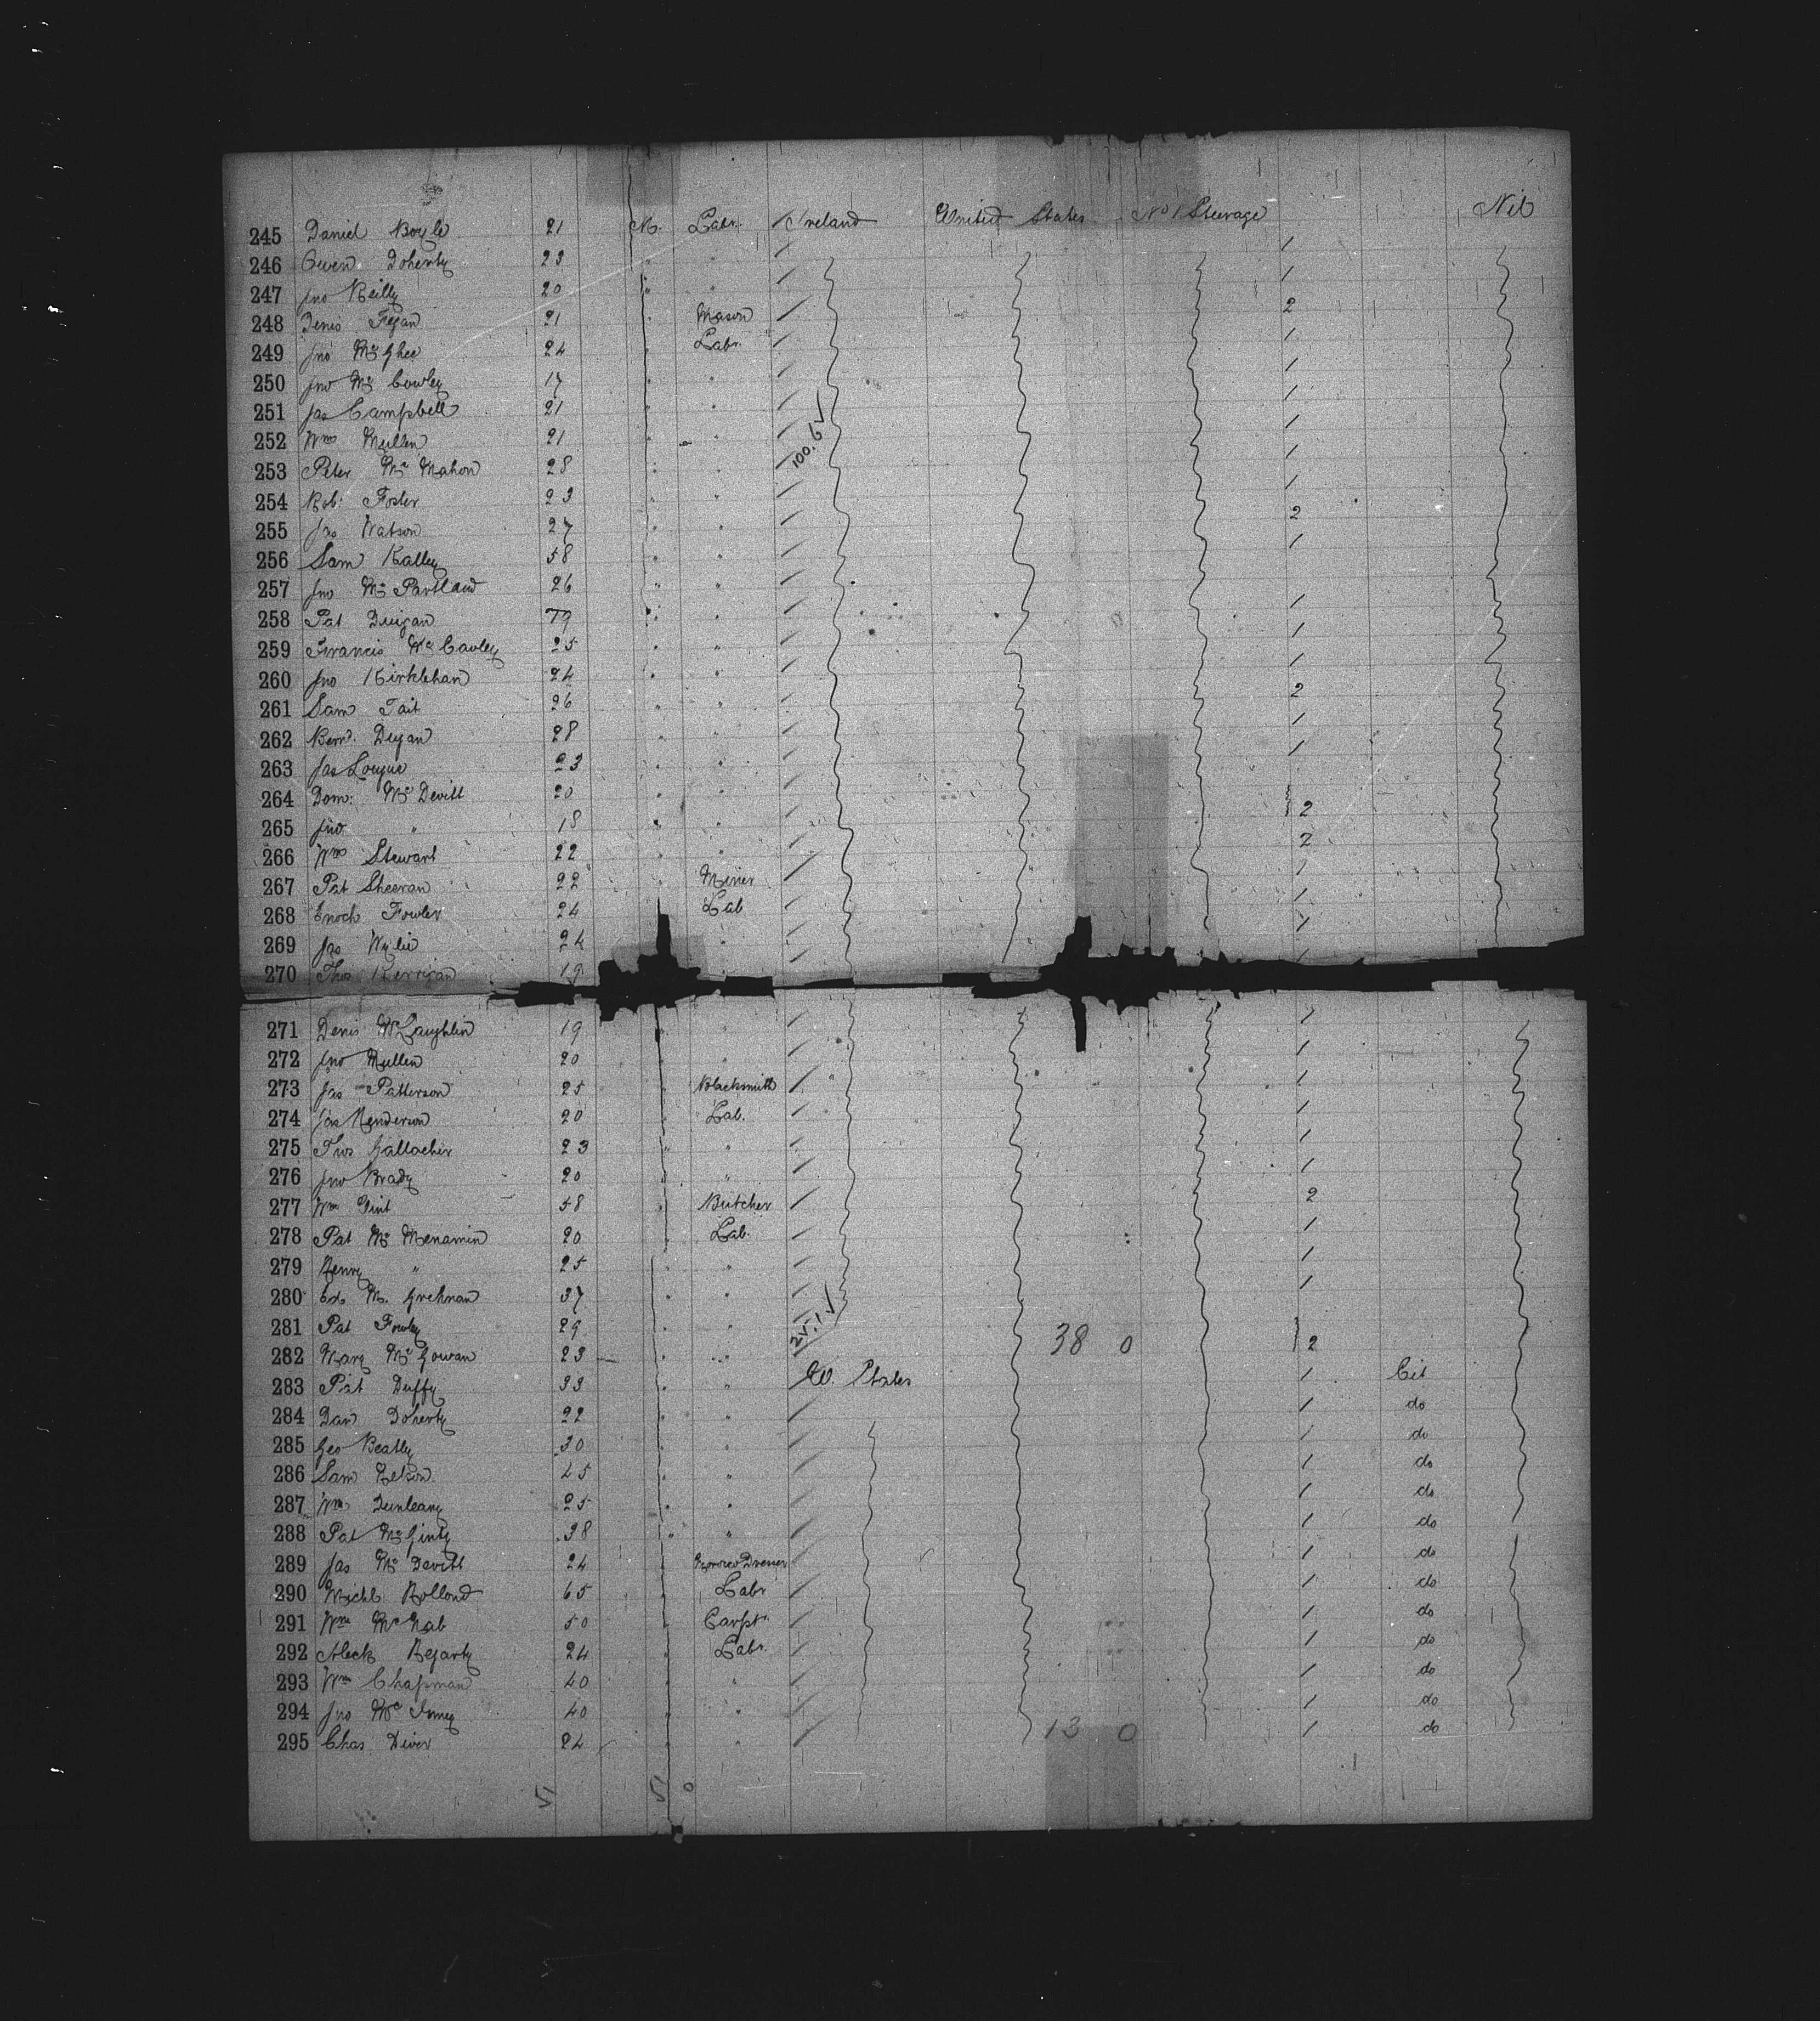 245 Daniel Boyle 21 M. Labr. Ireland United States No 1 Steerage Nil
246 Owen Doherty 23 " " 1
247 Jno Reilly 20 " " 1
248 Denis Fegan 21 " Mason 2
249 Jno McGhee 24 " Labr. 1
250 Jno Mc Cowley 17 " " 1
251 Jas Campbell 21 " " 1
252 Wm Mullen 21 " " 1
253 Peter Mc Mahon 28 " " 100.6 √ 1
254 Rob: Foster 23 " " 1
255 Jas Watson 27 " " 2
256 Sam Kalley 58 " " 1
257 Jno Mc Partland 26 " "
258 Pat Duigan 79 " " 1
259 Francis Mc Cauley 25 " " 1
260 Jno Kirklehan 24 " " 1
261 Sam Tait 26 " " 2
262 Bern. Degan 28 " " 1
263 Jas Logue 23 " " 1
264 Dom: Mc Devitt 20 " "
265 Jno " 18 " " 2
266 Wm Stewart 22 " " 2
267 Pat Sheeran 22 " Miner 1
268 Enoch Fowler 24 " Lab 1
269 Jas Wylie 24 " 1
270 Thos Kerrigan 19 1
271 Denis McLaughlin 19 " 1
272 Jno Mullen 20 " 1
273 Jas Patterson 25 " Blacksmith 1
274 Jas Henderson 20 " Lab. 1
275 Thos Gallacher 23 " " 1
276 Jno Brady 20 " " 1
277 Wm Gint 58 " Butcher 2
278 Pat Mc Menamin 20 " Lab. 1
279 Henry " 25 " " 1
280 Ed. M. Grehnan 37 " " 1
281 Pat Fowley 29 " " 25.1 √
282 Marg Mc Gowan 23 " " 38 0 2
283 Pat Duffy 33 " " U. States 1 Cit
284 Dan Doherty 22 " " 1 do
285 Geo Beatty 30 " " 1 do
286 Sam Nelson 45 " " 1 do
287 Wm Dunleavy 25 " " 1 do
288 Pat McGinty 38 " " 1 do
289 Jas Mc Davitt 24 " Morocco Dresser 1 do
290 Michl Bolland 65 " Labr 1 do
291 Wm McNab 50 " Carptr 1 do
292 Aleck Hegarty 24 " Labr. 1 do
293 Wm Chapman 40 " " 1 do
294 Jno Mc 40 " " 1 do
295 Chas Diver 24 " " 13 0 1 do
51 51 0